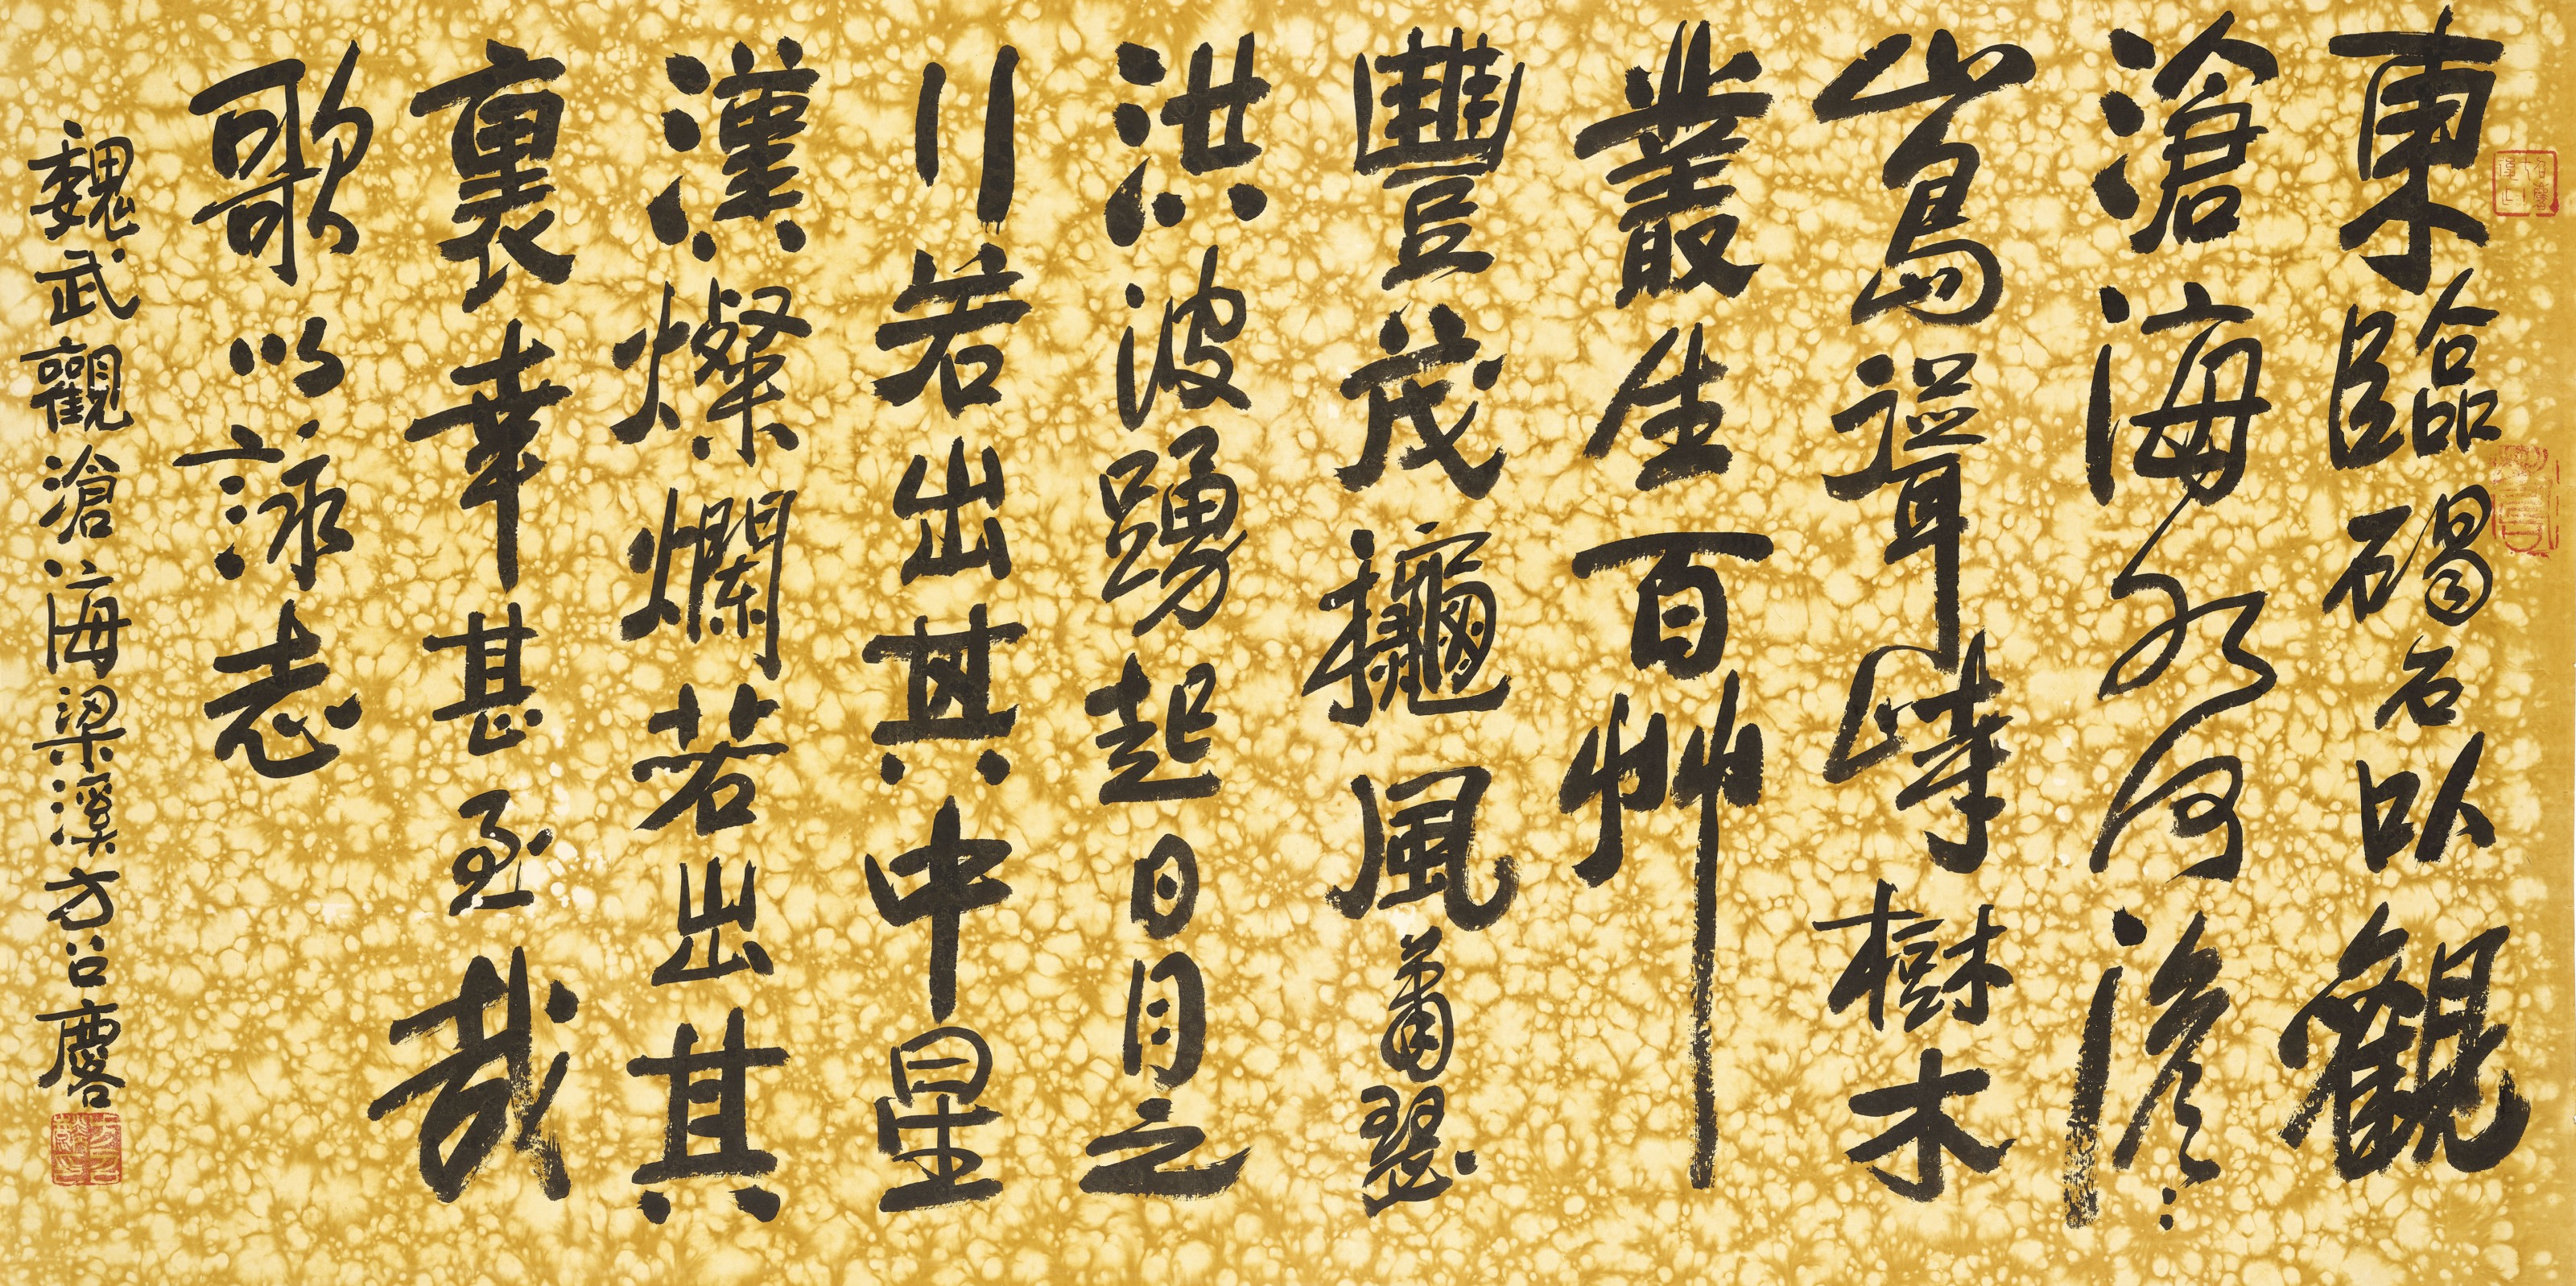 東臨碣石以觀
滄海水何澹〻
山島聳峙樹木
叢生百艸
豐茂龝風蕭瑟
洪波踴起日月之
行若出其中星
漢燦爛若出其
裏幸甚至哉
歌以詠志
魏武觀滄海梁溪方召麐